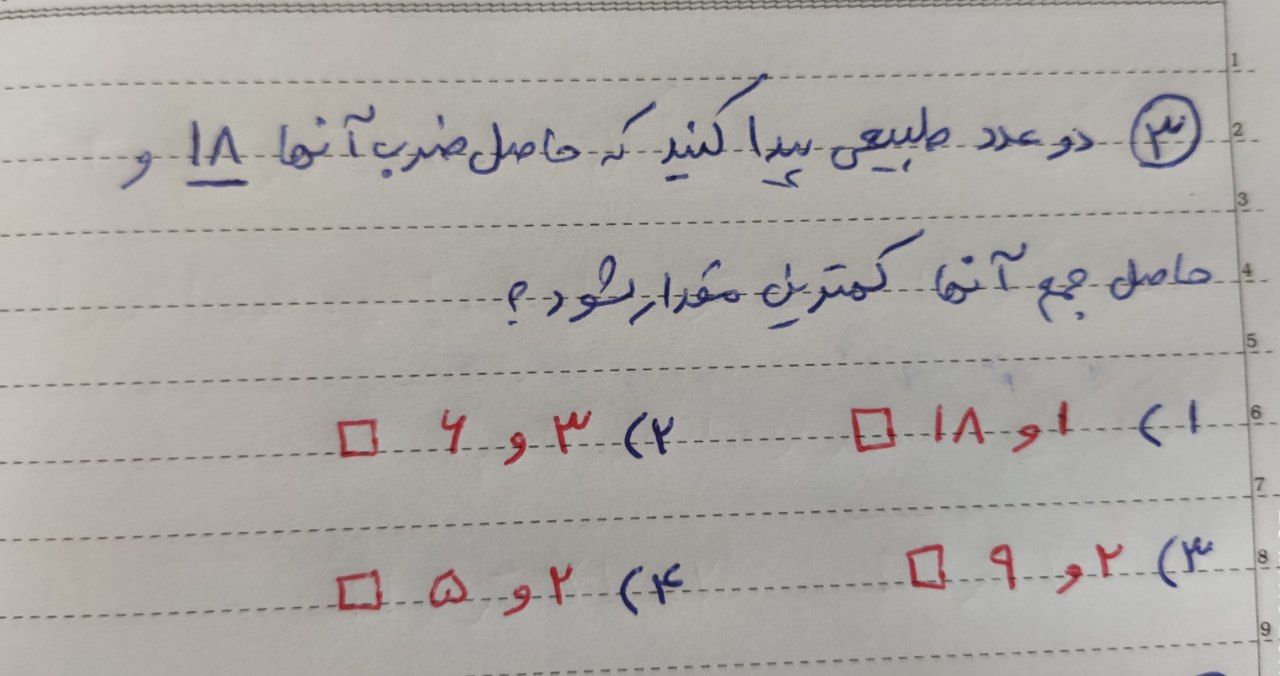 ۳ دو عدد طبیعی پیدا کنید که حاصل ضرب آنها ۱۸ و
حاصل جمع آنها کمترین مقدار شود؟
۱) ۱ و ۱۸ ۲) ۳ و ۶
۳) ۲ و ۹ ۴) ۲ و ۵
1
2
3
4
5
6
7
8
9